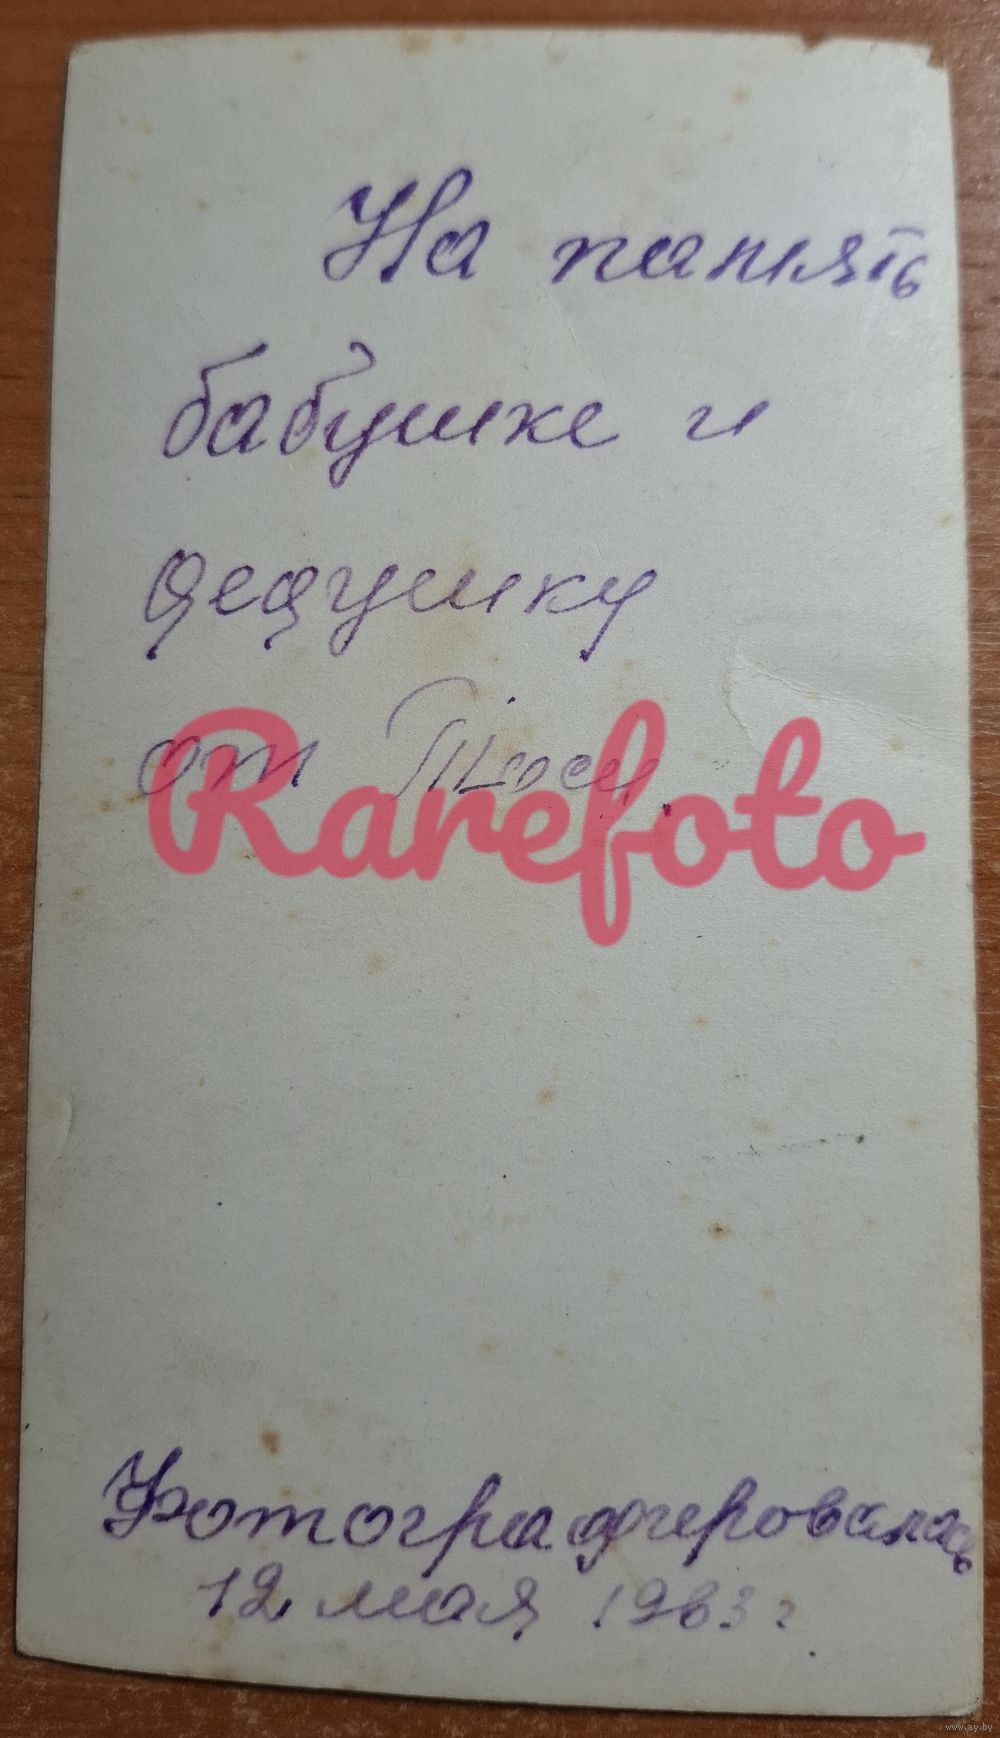 На память
бабушке и
дедушку
от Тоси.
Rarefoto
Фотографировалась
12 мая 1963 г.
www.ay.by